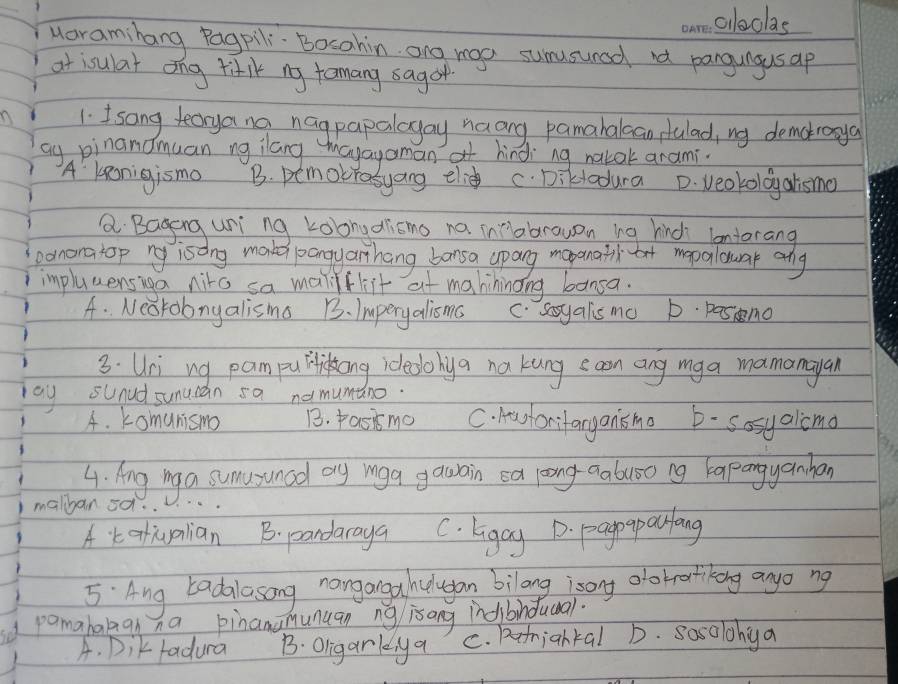 DATE:
Maramihang Pagpili - Basahin ang mga sumusunod na pangungusap
at isulat ang titik ng tamang sagot.
1. Isang teorya na nagpapalagay na ang pamahalaan, tulad, ng demokrasya
ay pinamamuan ng ilang mayayaman at hindi ng nakakarami.
A. kronigismo B. Demokrasyang elit C. Diktadura D. Neokolgyarismo
2. Bagong uri ng kolonyalismo na inilabrawan ng hindi lantarang
pananatop ng isang makapangyarihang bansa upang mapanatili at mapalawak ang
impluwensiya nito sa maliliit at mahihinang bansa.
A. Neokobnyalismo B. Imperyalismo C. sosyalismo D. pasismo
3. Uri ng pampulitikang ideolohiya na kung saan ang mga mamamayan
ay sunud sunuran sa namumuno.
A. komunismo B. Pasismo C. Awtoritaryanismo D- sosyalismo
4. Ang mga sumusunod ay mga gawain sa pang-aabuso ng kapangyarihan
maliban sa.......
A katiwalian B. pandaraya C. Ligay D. pagpapautang
5. Ang kadalasang nangangahulugan bilang isang otokratikong anyo ng
pamahalaan na pinamumunuan ng isang indibinduwal.
A. Diktadura B. Oligarkiya C. Patriarkal D. sosolohiya